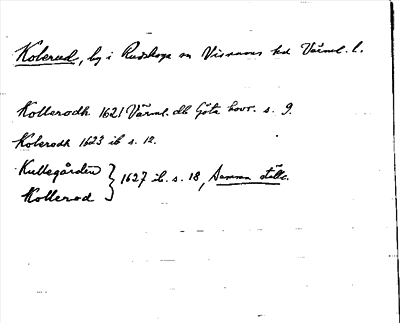 Kolerud, by i Rudskoga sn Visnums hd Värml. l.
Kollerodh 1621 Värml. db Göta hovr. s. 9.
Kolerodh 1623 ib s. 12.
Kullegården
Kollerod } 1627 ib. s. 18, Samma ställe.